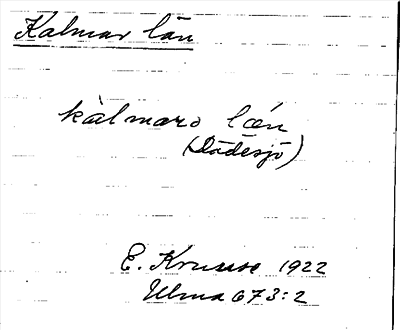 Kalmar län
kàlmaro lǽn
(Dädesjö)
E. Kruuse 1922
Ulma 673:2